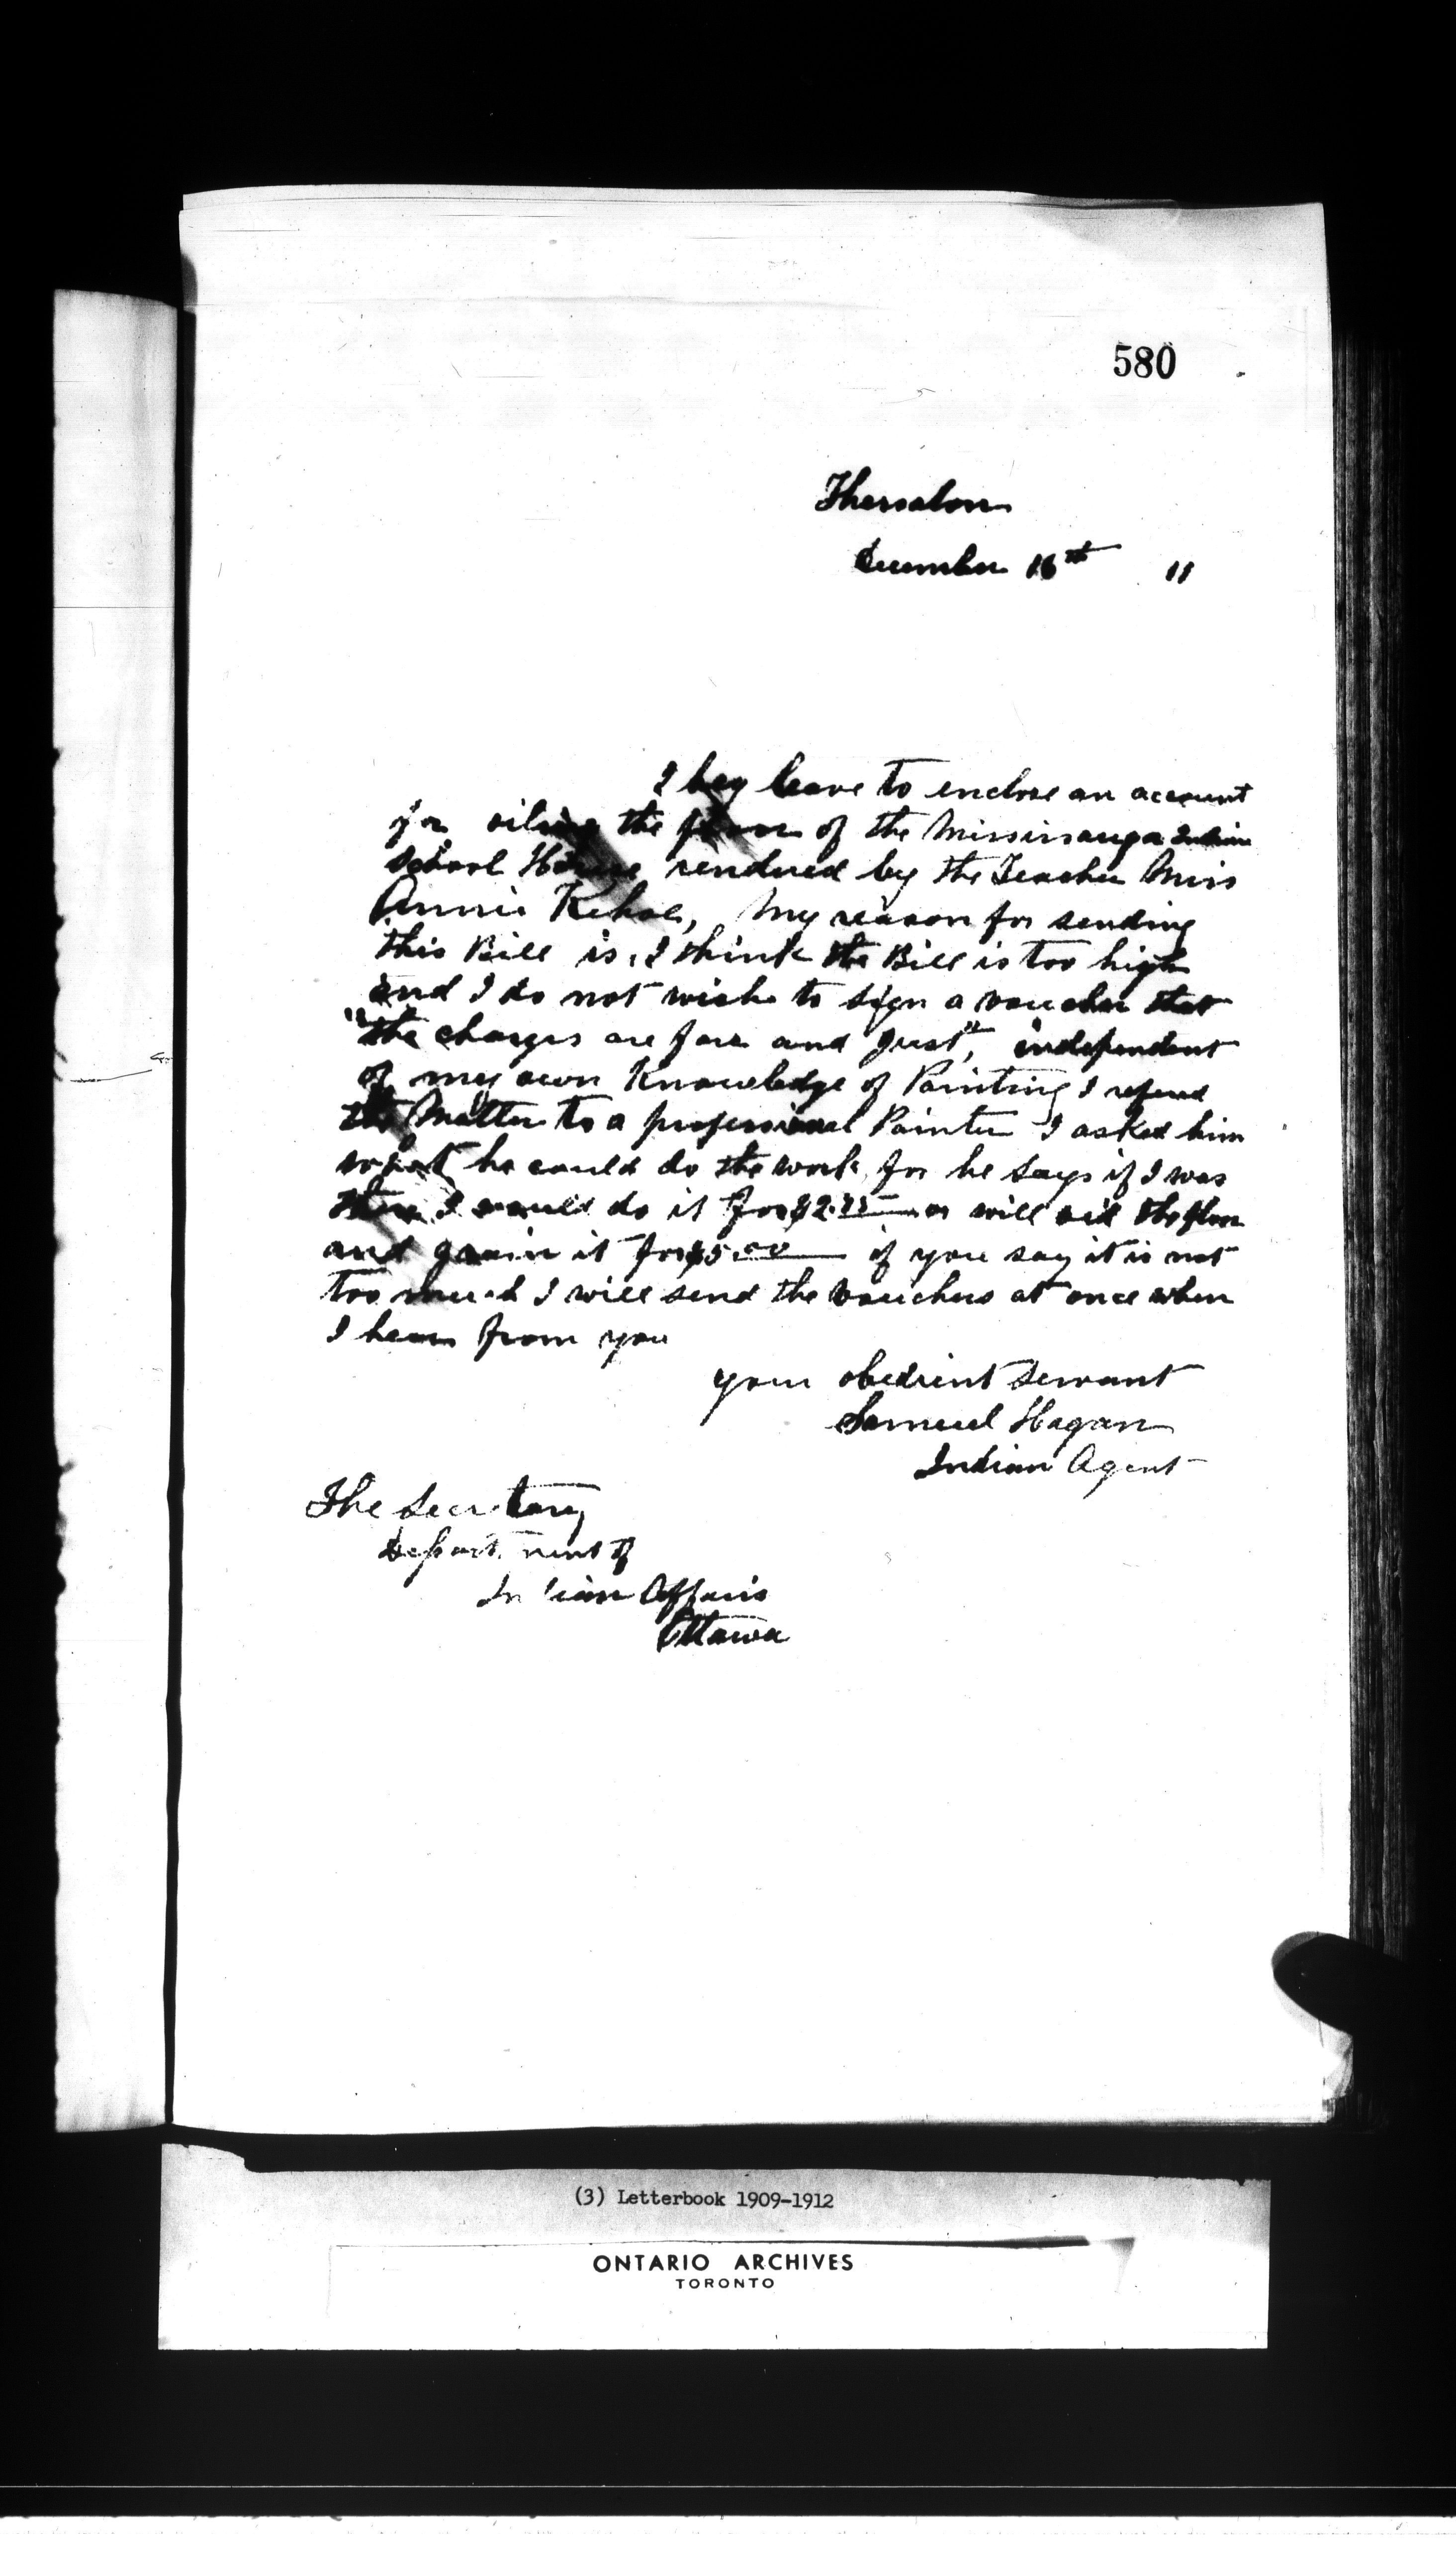 580
Thessalon
December 16th 11
I beg leave to enclose an account
for oiling the floor of the Mississauga Indian
School House rendered by the Teacher Miss
Annie Kehoe, My reason for sending
this Bill is, I think the Bill is too high
and I do not wish to sign a voucher that
"the charges are fair and Just", independent
of my own Knowledge of Painting I refered
the Matter to a professional Painter I asked him
what he could do the work for he says if I was
there I would do it for $2.75 or will oil the floor
and grain it for $5.00 if you say it is not
too much I will send the Vouchers at once when
I hear from you
your obedient servant
Samuel Hagan
Indian Agent
The Secretary
Department of
Indian Affairs
Ottawa
(3) Letterbook 1909-1912
ONTARIO ARCHIVES
TORONTO